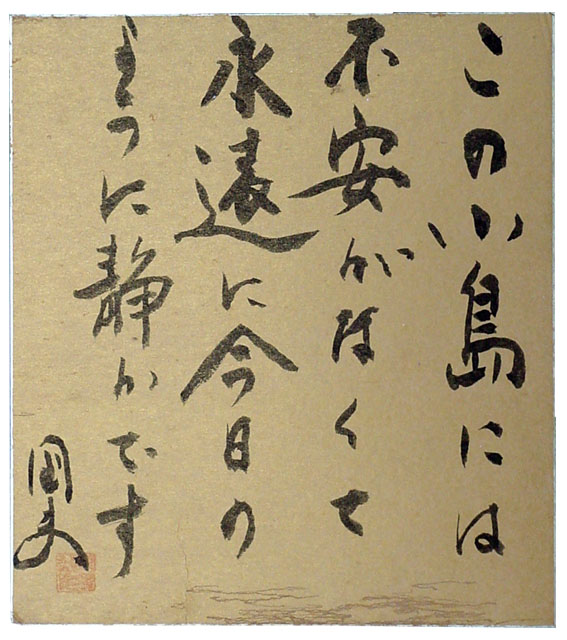 この小島には
不安がなくて
永遠に今日の
ように静かです
周文